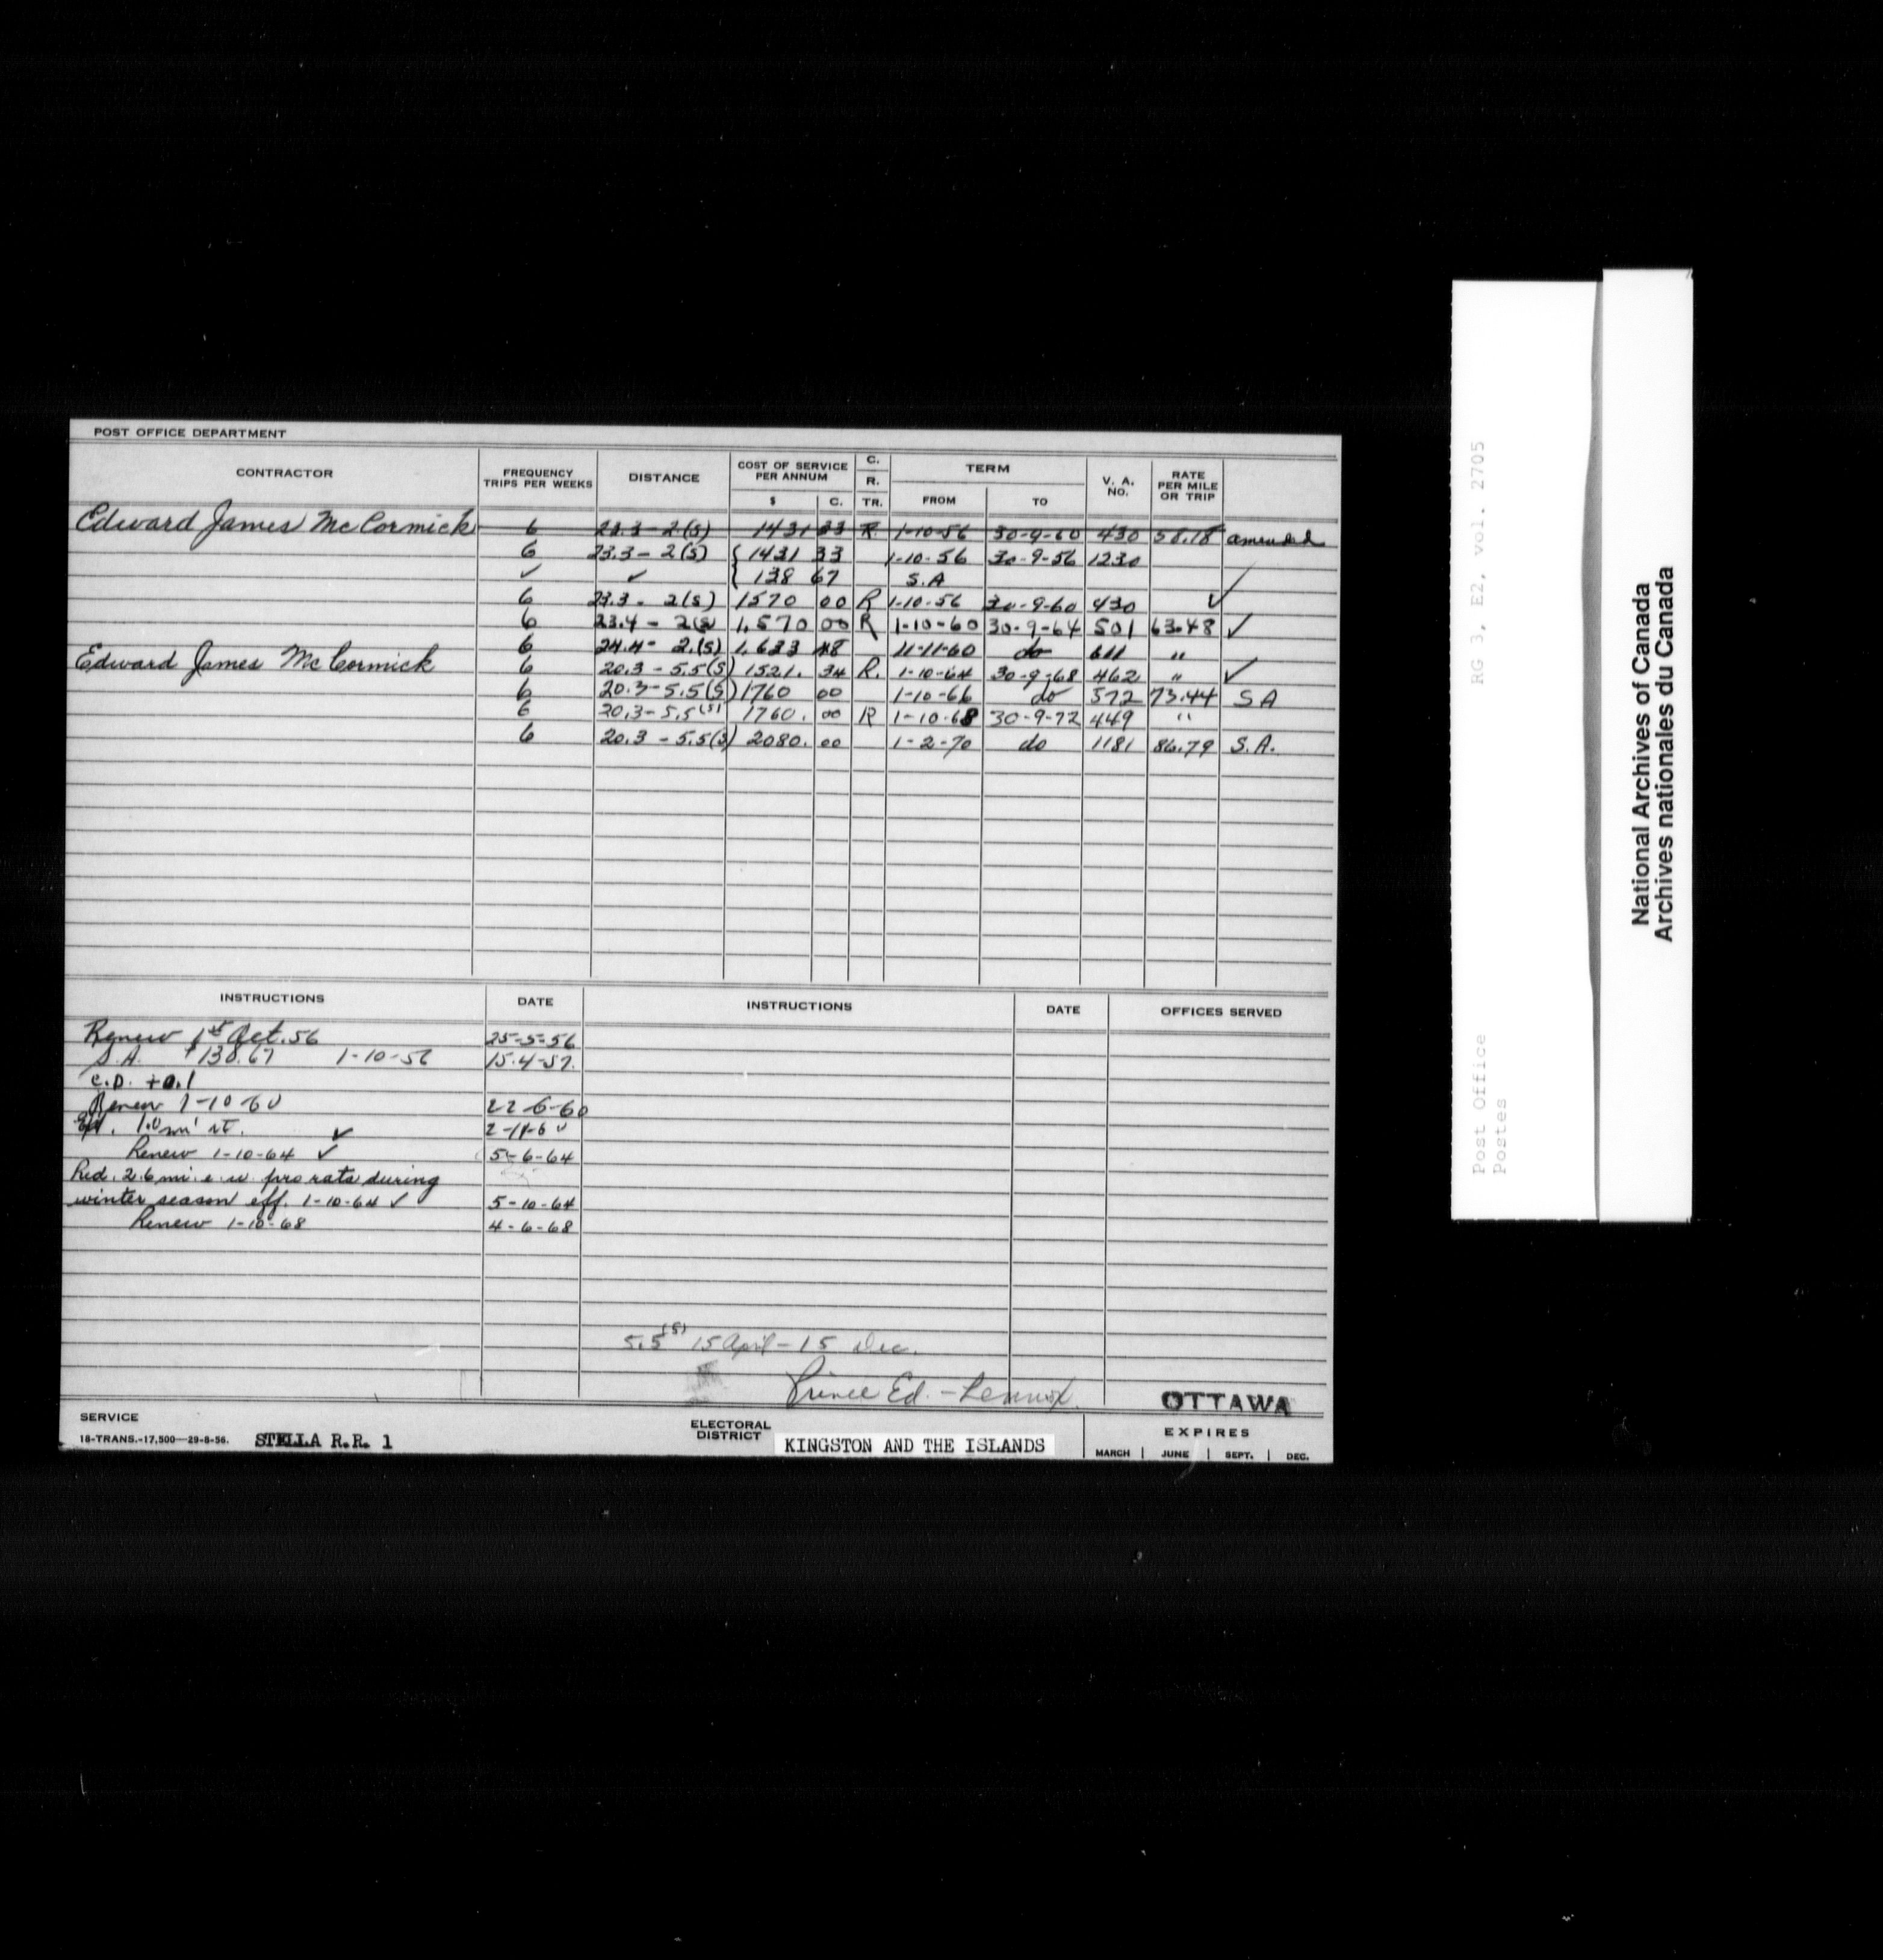 POST OFFICE DEPARTMENT
CONTRACTOR FREQUENCY TRIPS PER WEEKS DISTANCE COST OF SERVICE PER ANNUM $ C. C. R. TR. TERM FROM TO V. A. NO. RATE PER MILE OR TRIP
Edward James McCormick 6 23.3 - 2(S) 1431 33 R 1-10-56 30-9-60 430 58.18 amended
6 23.3 - 2(S) { 1431 33 1-10-56 30-9-56 1230
✓ ✓ { 138 67 S.A
6 23.3 - 2(S) 1570 00 R 1-10-56 30-9-60 430 ✓
6 23.4 - 2(S) 1,570 00 R 1-10-60 30-9-64 501 63.48 ✓
6 24.4 - 2.(S) 1,633 48 11-11-60 do 611 "
Edward James McCormick 6 20.3 - 5.5(S) 1521. 34 R. 1-10-64 30-9-68 462 " ✓
6 20.3 - 5.5(S) 1760 00 1-10-66 do 572 73.44 S A
6 20.3 - 5.5(S) 1760. 00 R 1-10-68 30-9-72 449 "
6 20.3 - 5.5(S) 2080. 00 1-2-70 do 1181 86.79 S.A.
INSTRUCTIONS DATE INSTRUCTIONS DATE OFFICES SERVED
Renew 1st Oct. 56 25-5-56
S.A. $138.67 1-10-56 15-4-57.
C.D. +0.1
Renew 1-10-60 22-6-60
Ext. 1.0 mi rt. ✓ 2-11-60
Renew 1-10-64 ✓ 5-6-64
Red. 2.6 mi. e.w. pro rata during
winter season eff. 1-10-64 ✓ 5-10-64
Renew 1-10-68 4-6-68
5.5(S) 15 April - 15 Dec.
Prince Ed. - Lennox.
OTTAWA
SERVICE
18-TRANS.-17,500—29-8-56. STELLA R.R. 1
ELECTORAL DISTRICT KINGSTON AND THE ISLANDS
EXPIRES
MARCH | JUNE | SEPT. | DEC.
RG 3, E2, vol. 2705
Post Office
Postes
National Archives of Canada
Archives nationales du Canada